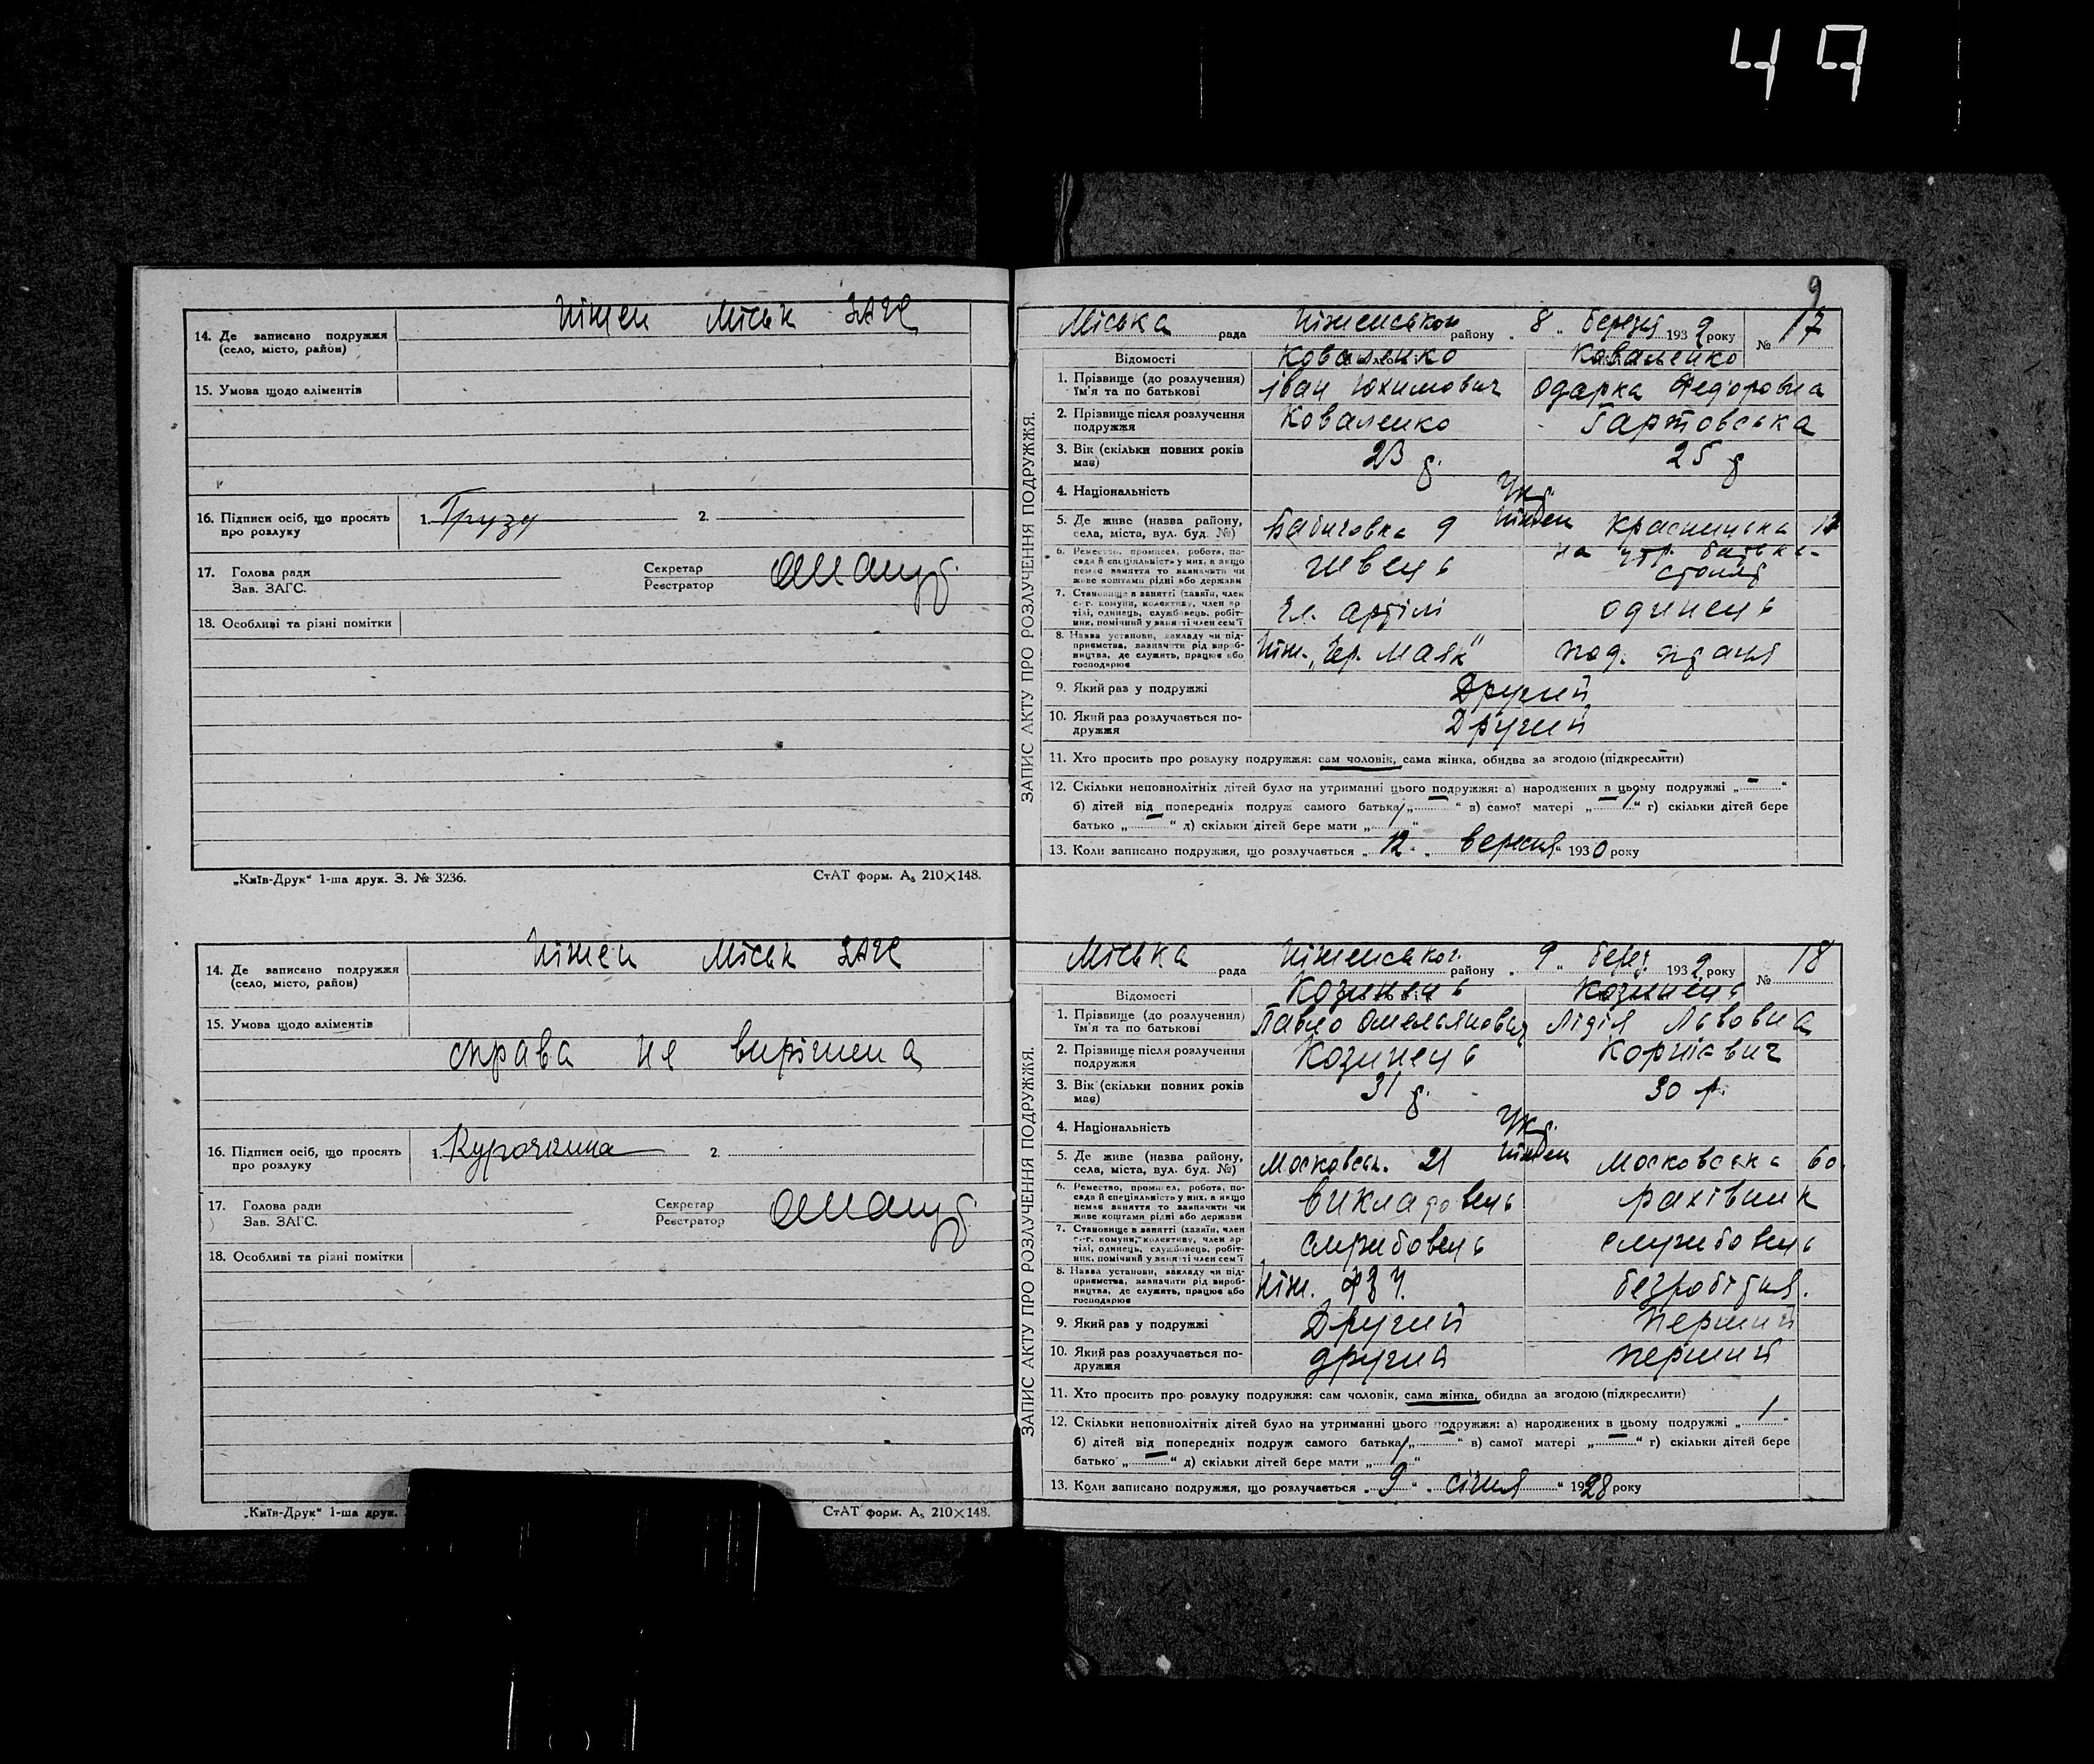 49
14. Де записано подружжя
(село, місто, район)
Ніжен Міськ ЗАГС
15. Умова щодо аліментів
16. Підписи осіб, що просять
про розлуку
1. Грузд
2.
17. Голова ради
Зав. ЗАГС.
Секретар
Реєстратор
18. Особливі та різні помітки
„Київ-Друк“ 1-ша друк. З. № 3236.
СтАТ форм. А₅ 210×148.
14. Де записано подружжя
(село, місто, район)
Ніжен Міськ ЗАГС
15. Умова щодо аліментів
справа не вирішена
16. Підписи осіб, що просять
про розлуку
1. Курочкина
2.
17. Голова ради
Зав. ЗАГС.
Секретар
Реєстратор
18. Особливі та різні помітки
„Київ-Друк“ 1-ша друк.
СтАТ форм. А₅ 210×148.
9
ЗАПИС АКТУ ПРО РОЗЛУЧЕННЯ ПОДРУЖЖЯ.
Міська рада Ніженськом району „ 8 „ березня 1932 року № 17
Відомості Коваленко Коваленко
1. Прізвище (до розлучення) ім'я та по батькові Іван Юхимович Одарка Федоровна
2. Прізвище після розлучення подружжя Коваленко Гартовська
3. Вік (скільки повних років має) 23 р. 25 р
4. Національність Укр.
5. Де живе (назва району, села, міста, вул. буд. №) Бабичовка 9 Ніжен Красницька 12
6. Ремество, промисел, робота, посада й спеціяльність у них, а якщо немає заняття то зазначити чи живе коштами рідні або держави швець на утр. батька-столяр
7. Становище в занятті (хазяїн, член с.-г. комуни, колективу, член артілі, одинець, службовець, робітник, помічний у занятті член сем'ї Чл. артілі одинець
8. Назва установи, закладу чи підприємства, зазначити рід виробництва, де служить, працює або господарює Ніж. „Чер. Маяк“ под.
9. Який раз у подружжі Другий
10. Який раз розлучається подружжя Другий
11. Хто просить про розлуку подружжя: сам чоловік, сама жінка, обидва за згодою (підкреслити)
12. Скільки неповнолітніх дітей було на утриманні цього подружжя: а) народжених в цьому подружжі „ – “
б) дітей від попередніх подруж самого батька „ “ в) самої матері „ “ г) скільки дітей бере
батько „ “ д) скільки дітей бере мати „ “
13. Коли записано подружжя, що розлучається „ 12 „ вересня 1930 року
ЗАПИС АКТУ ПРО РОЗЛУЧЕННЯ ПОДРУЖЖЯ.
Міська рада Ніженськог. району „ 9 „ берез. 1932 року № 18
Відомості Козинець Козинець
1. Прізвище (до розлучення) ім'я та по батькові Павло Омельянович Лідія Львовна
2. Прізвище після розлучення подружжя Козинець Корнієвич
3. Вік (скільки повних років має) 31 р. 30 р.
4. Національність Укр.
5. Де живе (назва району, села, міста, вул. буд. №) Московськ. 21 Ніжен Московська 60
6. Ремество, промисел, робота, посада й спеціяльність у них, а якщо немає заняття то зазначити чи живе коштами рідні або держави викладовець рахівник
7. Становище в занятті (хазяїн, член с.-г. комуни, колективу, член артілі, одинець, службовець, робітник, помічний у занятті член сем'ї службовець службовець
8. Назва установи, закладу чи підприємства, зазначити рід виробництва, де служить, працює або господарює Ніж. ФЗУ. безробітня.
9. Який раз у подружжі Другий Перший
10. Який раз розлучається подружжя другий перший
11. Хто просить про розлуку подружжя: сам чоловік, сама жінка, обидва за згодою (підкреслити)
12. Скільки неповнолітніх дітей було на утриманні цього подружжя: а) народжених в цьому подружжі „ 1 “
б) дітей від попередніх подруж самого батька „ “ в) самої матері „ “ г) скільки дітей бере
батько „ “ д) скільки дітей бере мати „ “
13. Коли записано подружжя, що розлучається „ 9 “ „ січня “ 1928 року